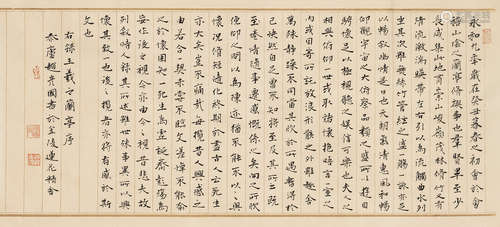 永和九年歲在癸丑暮春之初會於會
稽山陰之蘭亭脩稧事也群賢畢至少
長咸集此地有崇山峻嶺茂林脩竹又有
清流激湍暎帶左右引以為流觴曲水列
坐其次雖無絲竹管絃之盛一觴一詠亦足
以暢敘幽情是日也天朗氣清惠風和暢
仰觀宇宙之大俯察品類之盛所以遊目
騁懷足以極視聽之娛信可樂也夫人之
相與俯仰一世或取諸懷抱悟言一室之
內或因寄所託放浪形骸之外雖趣舍
萬殊靜躁不同當其欣於所遇暫得於
己快然自足曾不知將至及其所之既
惓情隨事遷感慨係之矣向之所欣
俛仰之間以為陳迹猶不能不以之興
懷況脩短隨化終期於盡古人云死生
亦大矣豈不痛哉每攬昔人興感之
由若合一契未嘗不臨文嗟悼不能喻
之於懷固知一死生為虛誕齊彭殤為
妄作後之視今亦由今之視昔悲夫故
列敘時人錄其所述雖世殊事異所以興
懷其致一也後之攬者亦將有感於斯
文也
右錄王羲之蘭亭序
泰康趙光國者於金陵蓮花精舍